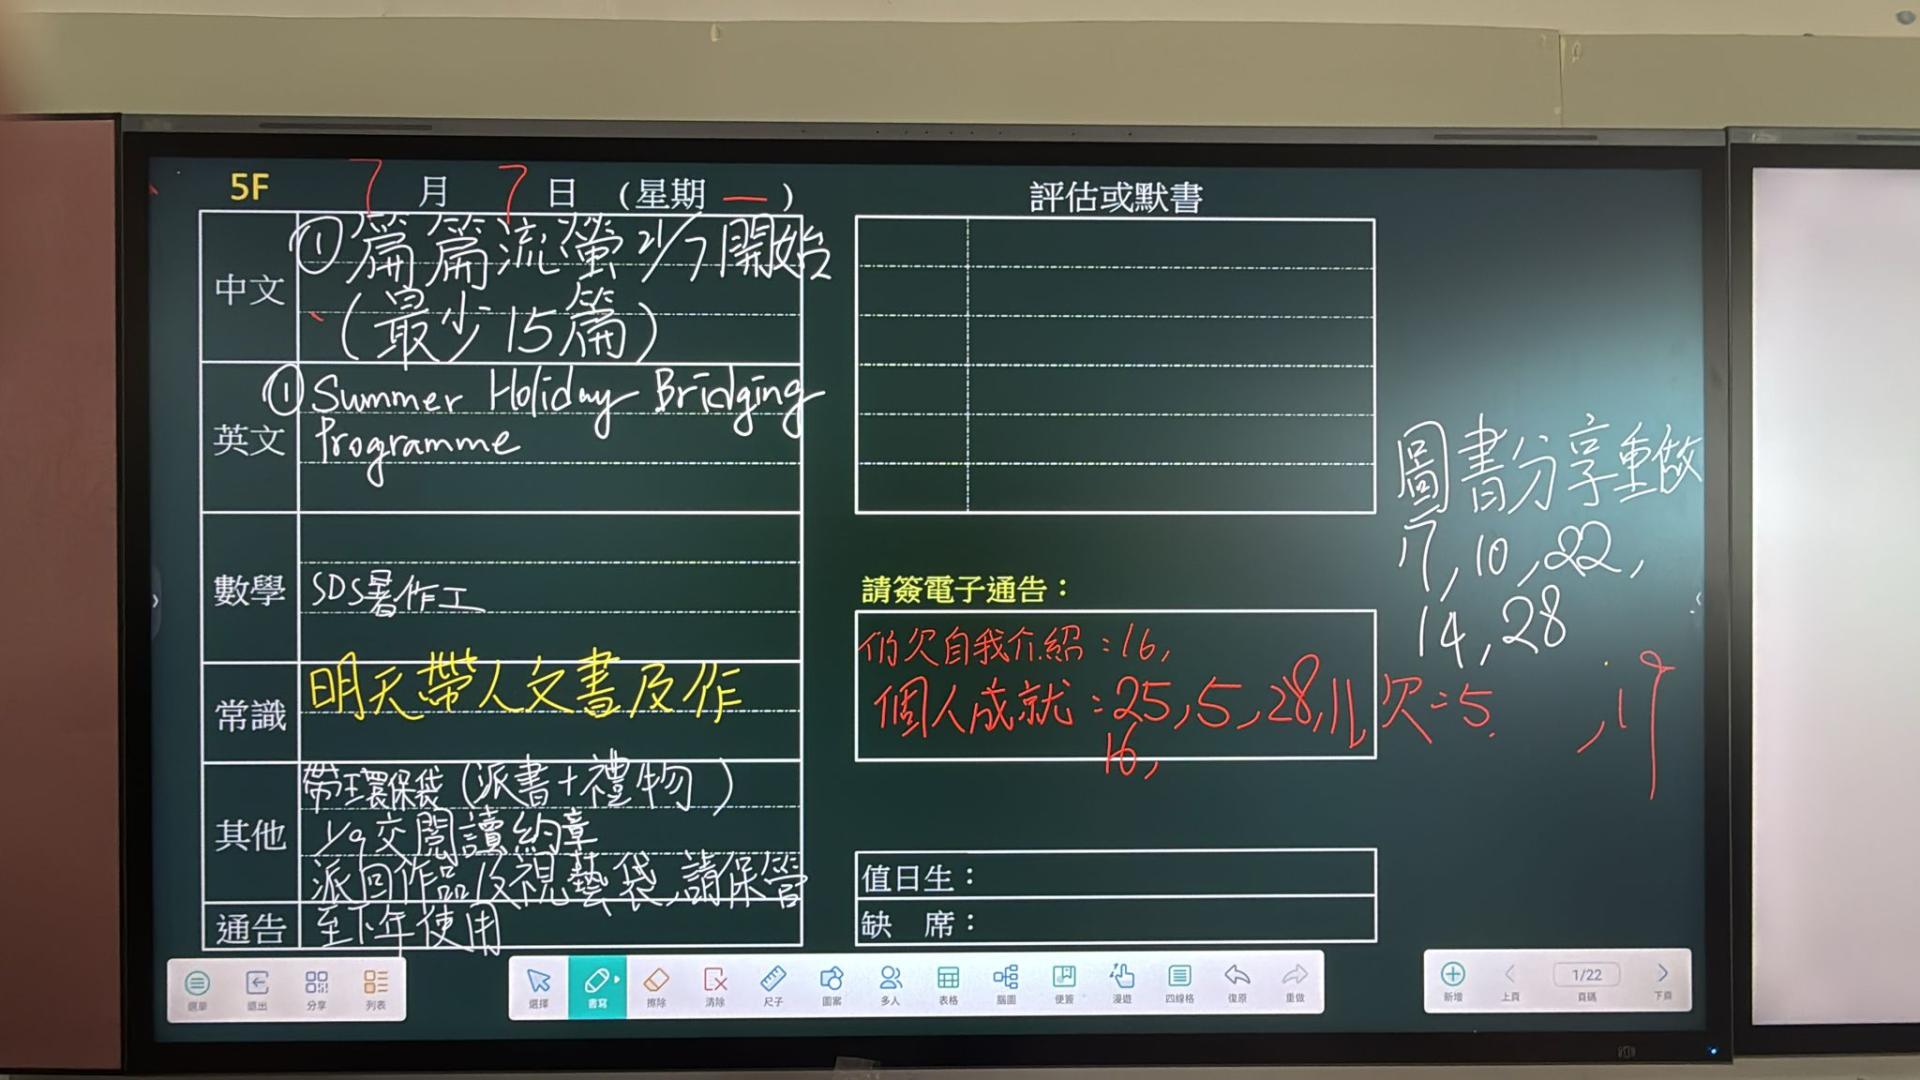 5F 7 月 7 日 (星期 一)
中文
①篇篇流螢 21/7開始
(最少15篇)
英文
①Summer Holiday Bridging
Programme
數學
SDS暑作工
常識
明天帶人文書及作
其他
帶環保袋(派書+禮物)
1/9交閱讀約章
派回作品及視藝袋,請保管
通告
至下年使用
評估或默書
請簽電子通告:
仍欠自我介紹:16,
個人成就:25,5,28,11, 欠=5
16,
值日生:
缺 席:
圖書分享重做
17,10,22,
14,28
選單
退出
分享
列表
選擇
書寫
擦除
清除
尺子
圖案
多人
表格
腦圖
便簽
漫遊
四線格
復原
重做
新增
上頁
1/22
頁碼
下頁